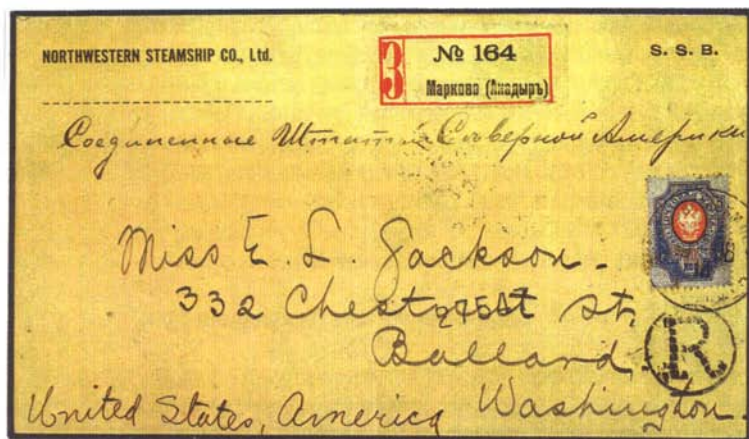 NORTHWESTERN STEAMSHIP CO., Ltd.
З
№ 164
Марково (Анадыръ)
S. S. B.
Соединенные Штаты Северной Америки
Miss E. L. Jackson.
332 Chestnut St,
Ballard,
Washington.
United States, America
R